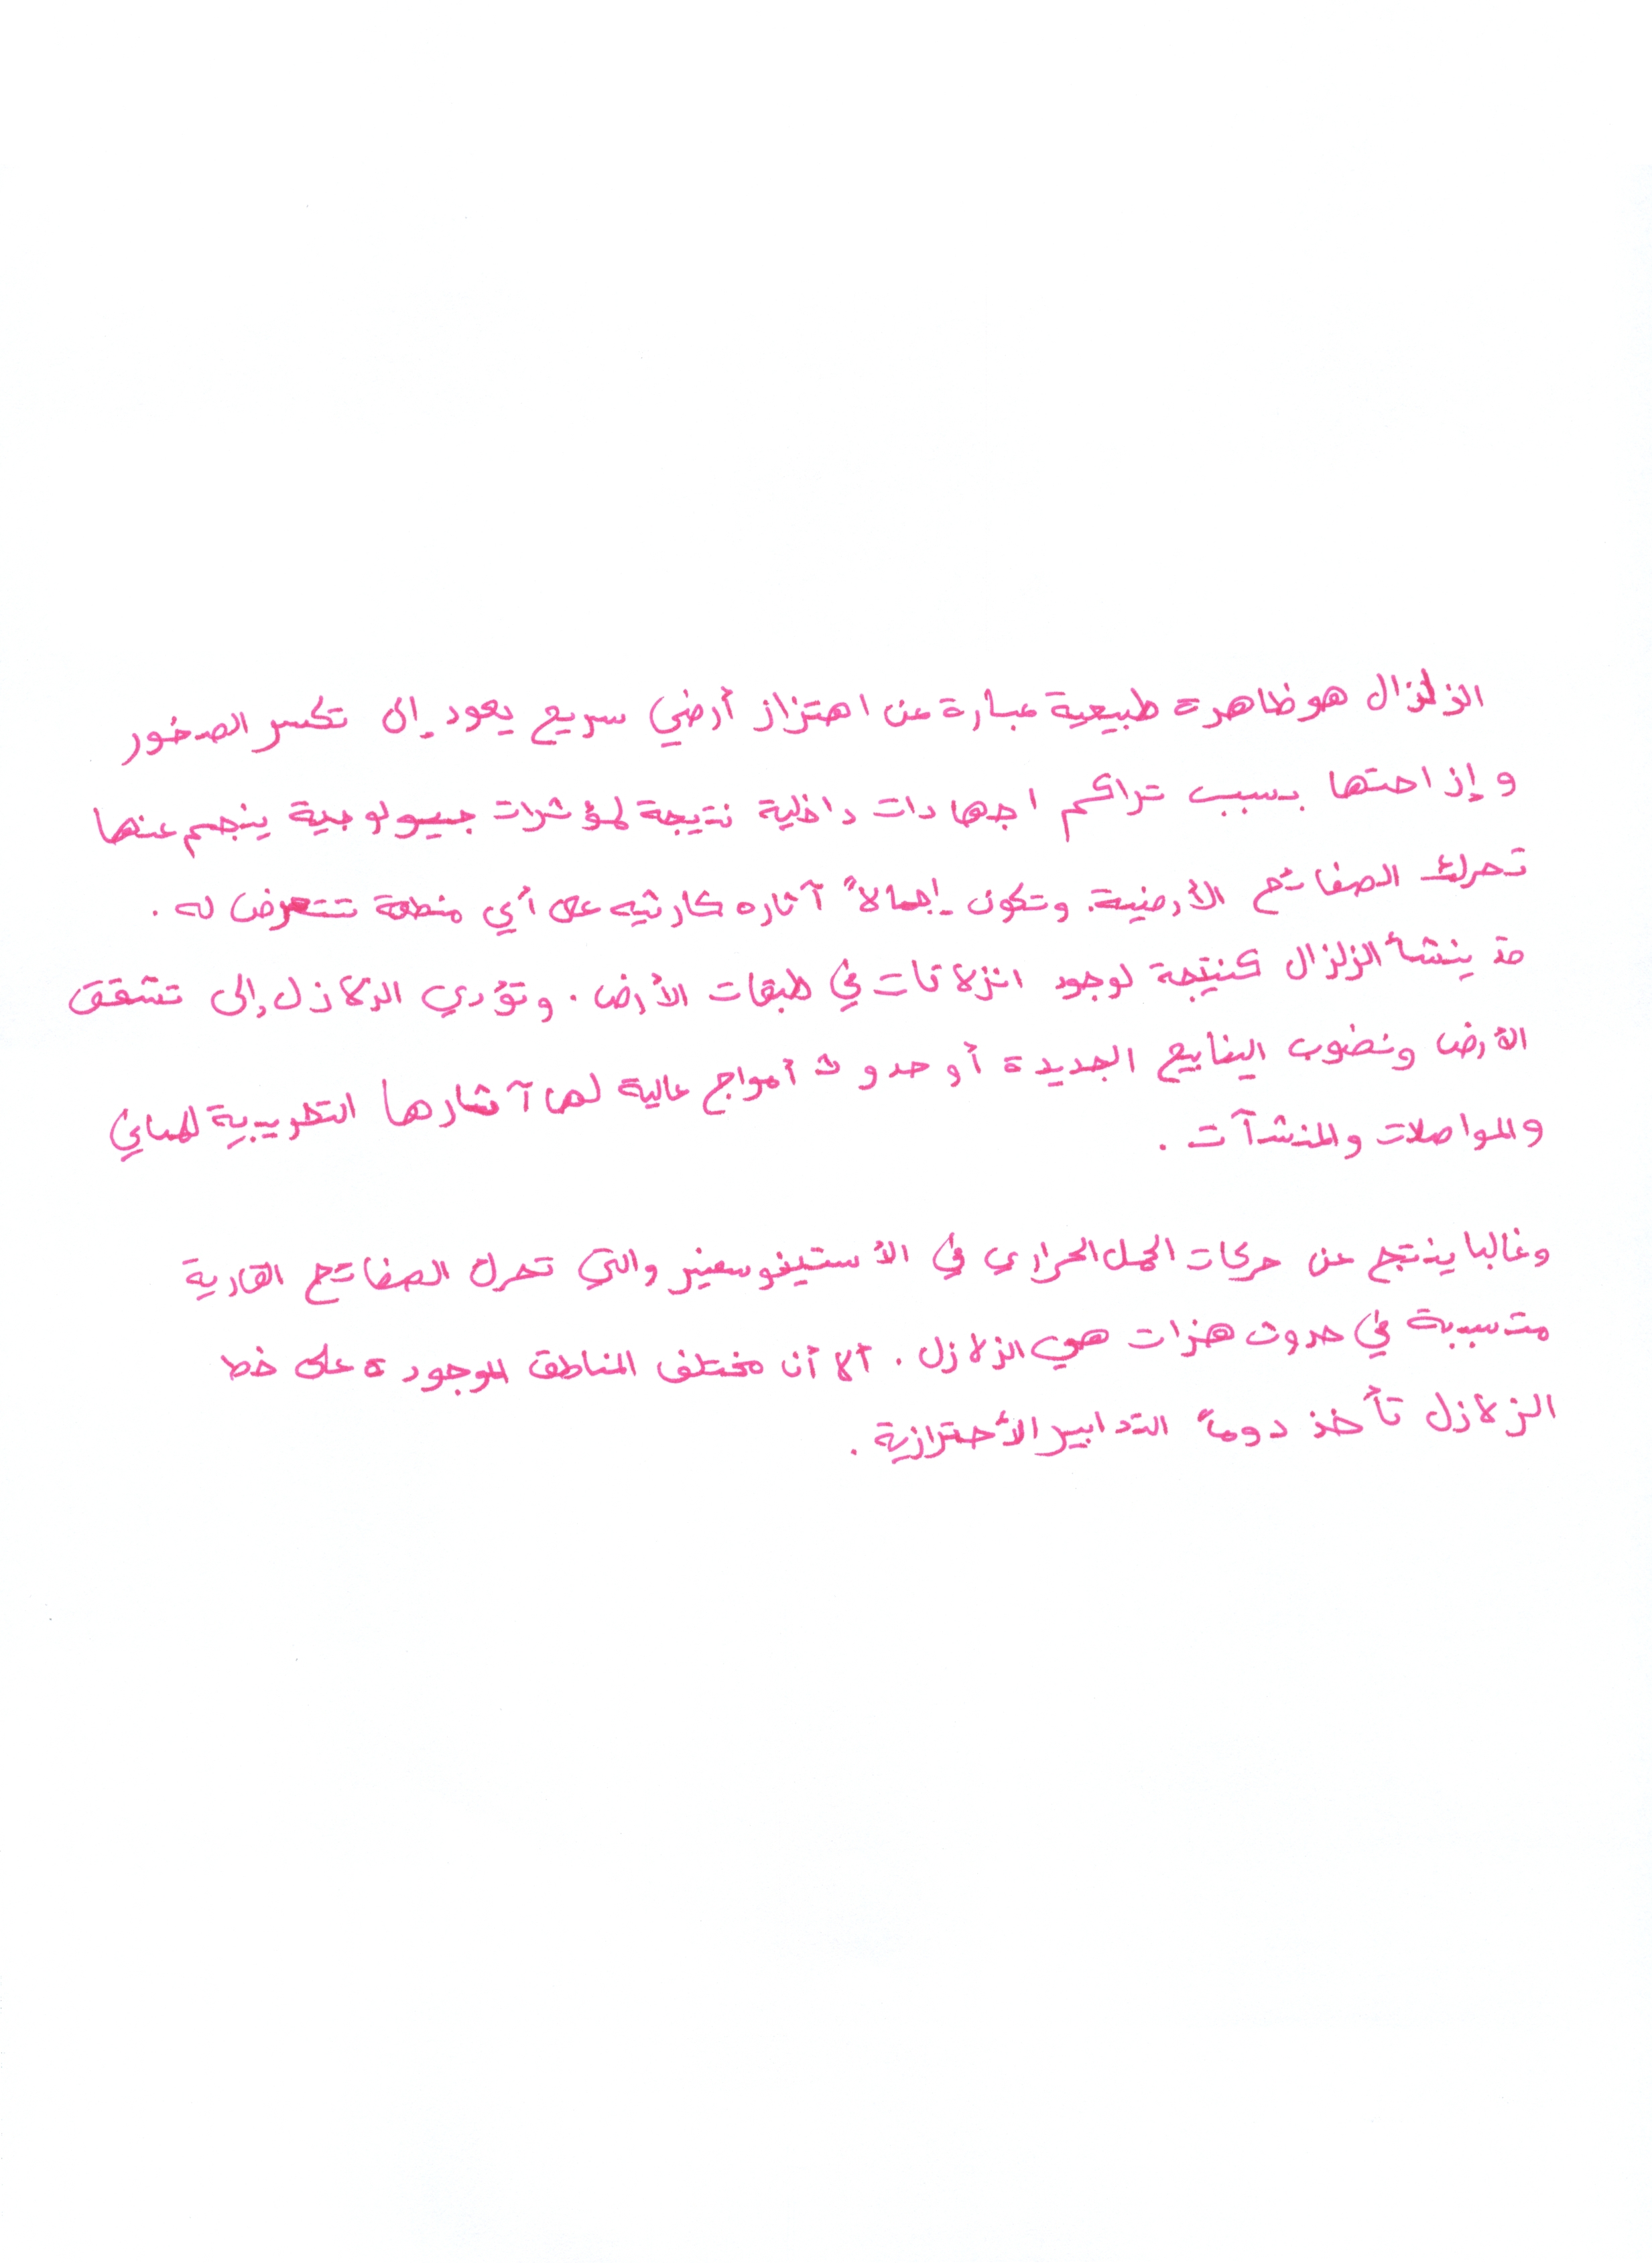 الزلزال هو ظاهرة طبيعية عبارة عن اهتزاز أرضي سريع يعود إلى تكسر الصخور
وإزاحتها بسبب تراكم اجهادات داخلية نتيجة لمؤثرات جيولوجية ينجم عنها
تحرك الصفائح الأرضية. وتكون إجمالاً آثاره كارثيه على أي منطقة تتعرض له .
قد ينشأ الزلزال كنتيجة لوجود انزلاقات في طبقات الأرض . وتؤدي الزلازل إلى تشقق
الأرض ونضوب الينابيع الجديدة أو حدوث أمواج عالية لها آثارها التخريبية للمباني
والمواصلات والمنشآت .
وغالبا ينتج عن حركات الحمل الحراري في الأستينوسفير والتي تحرك الصفائح القارية
متسببة في حدوث هزات هي الزلازل . ألا أن مختلف المناطق الموجودة على خط
الزلازل تأخذ دوماً التدابير الأحترازية .